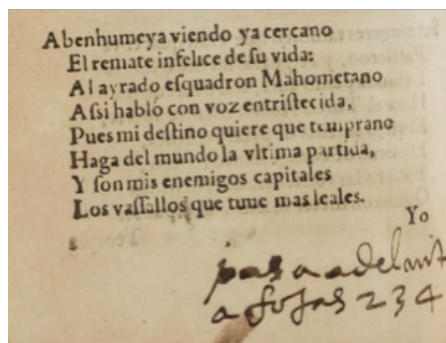 Abenhumeya viendo ya cercano
El remate infelice de su vida:
Al ayrado eſquadron Mahometano
Aſsi habló con voz entriſtecida,
Pues mi deſtino quiere que temprano
Haga del mundo la vltima partida,
Y ſon mis enemigos capitales
Los vaſſallos que tuue mas leales.
Yo
pasa adelant
a fojas 234